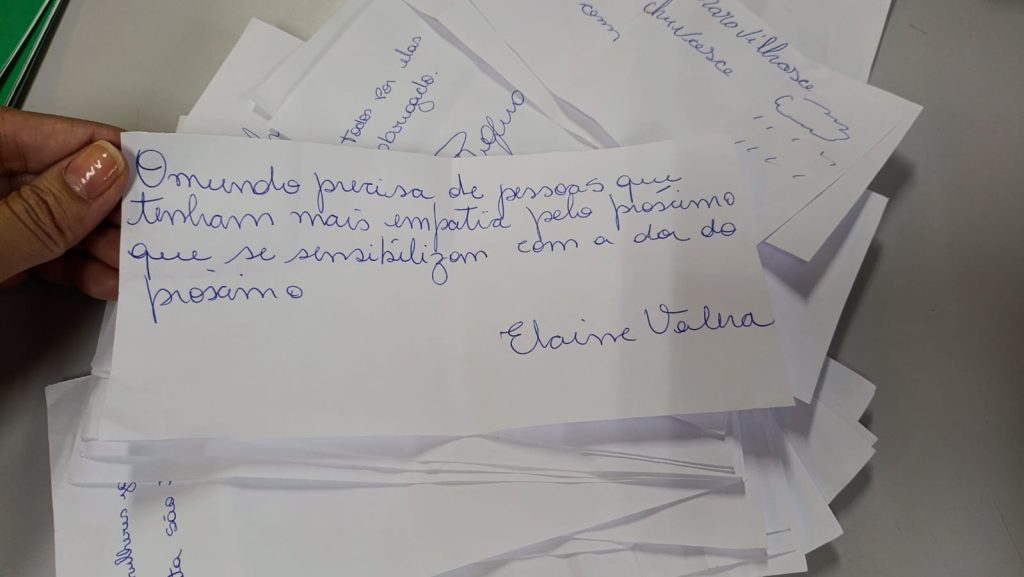 O mundo precisa de pessoas que
tenham mais empatia pelo próximo
que se sensibilizam com a dor do
próximo
Elaine Valera
todos por elas
obrigado.
com
maravilhosce
chuvcesce
ta são